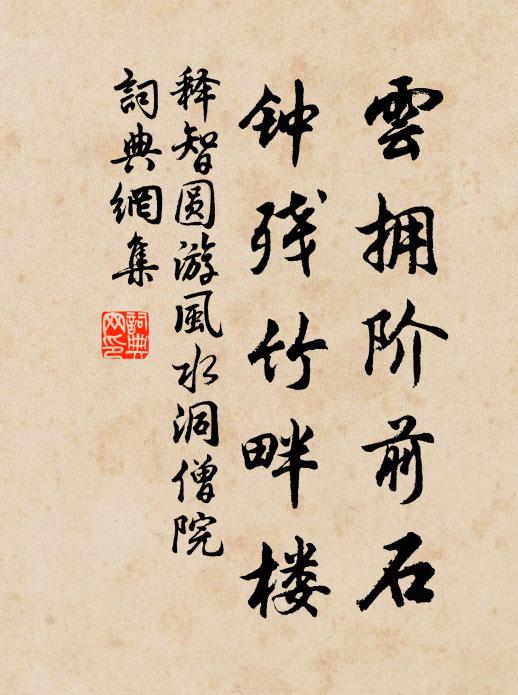 雲拥阶前石
钟残竹畔楼
释智圆游風水洞僧院
詞典網集
詞典網印